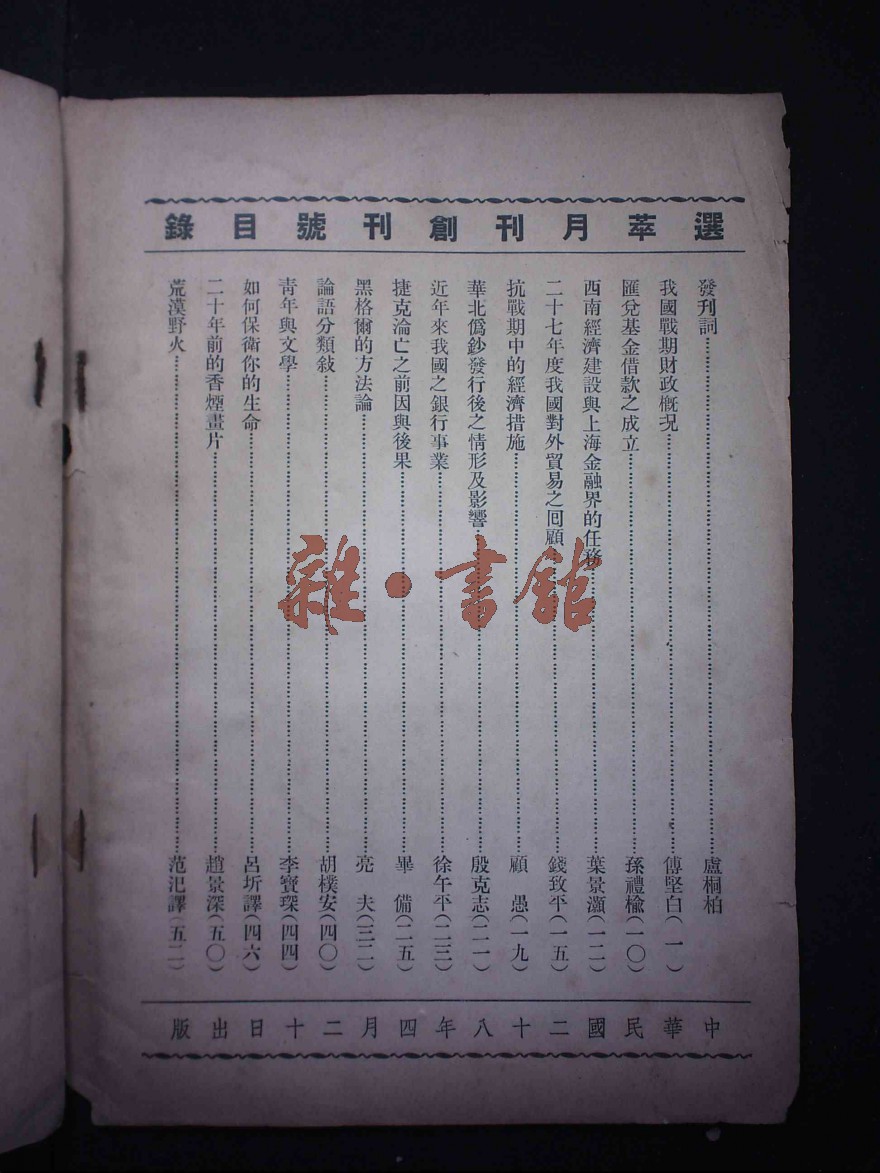 選萃月刊創刊號目錄
發刊詞…………盧桐柏
我國戰期財政概況…………傅堅白(一)
匯兌基金借款之成立…………孫禮楡(一〇)
西南經濟建設與上海金融界的任務…………葉景灝(一二)
二十七年度我國對外貿易之囘顧…………錢致平(一五)
抗戰期中的經濟措施…………顧愚(一九)
華北僞鈔發行後之情形及影響…………殷克志(二一)
近年來我國之銀行事業…………徐午平(二三)
捷克淪亡之前因與後果…………畢備(二五)
黑格爾的方法論…………亮夫(三二)
論語分類敍…………胡樸安(四〇)
靑年與文學…………李寶琛(四四)
如何保衛你的生命…………呂圻譯(四六)
二十年前的香煙畫片…………趙景深(五〇)
荒漠野火…………范汜譯(五二)
中華民國二十八年四月二十日出版
雜·書館